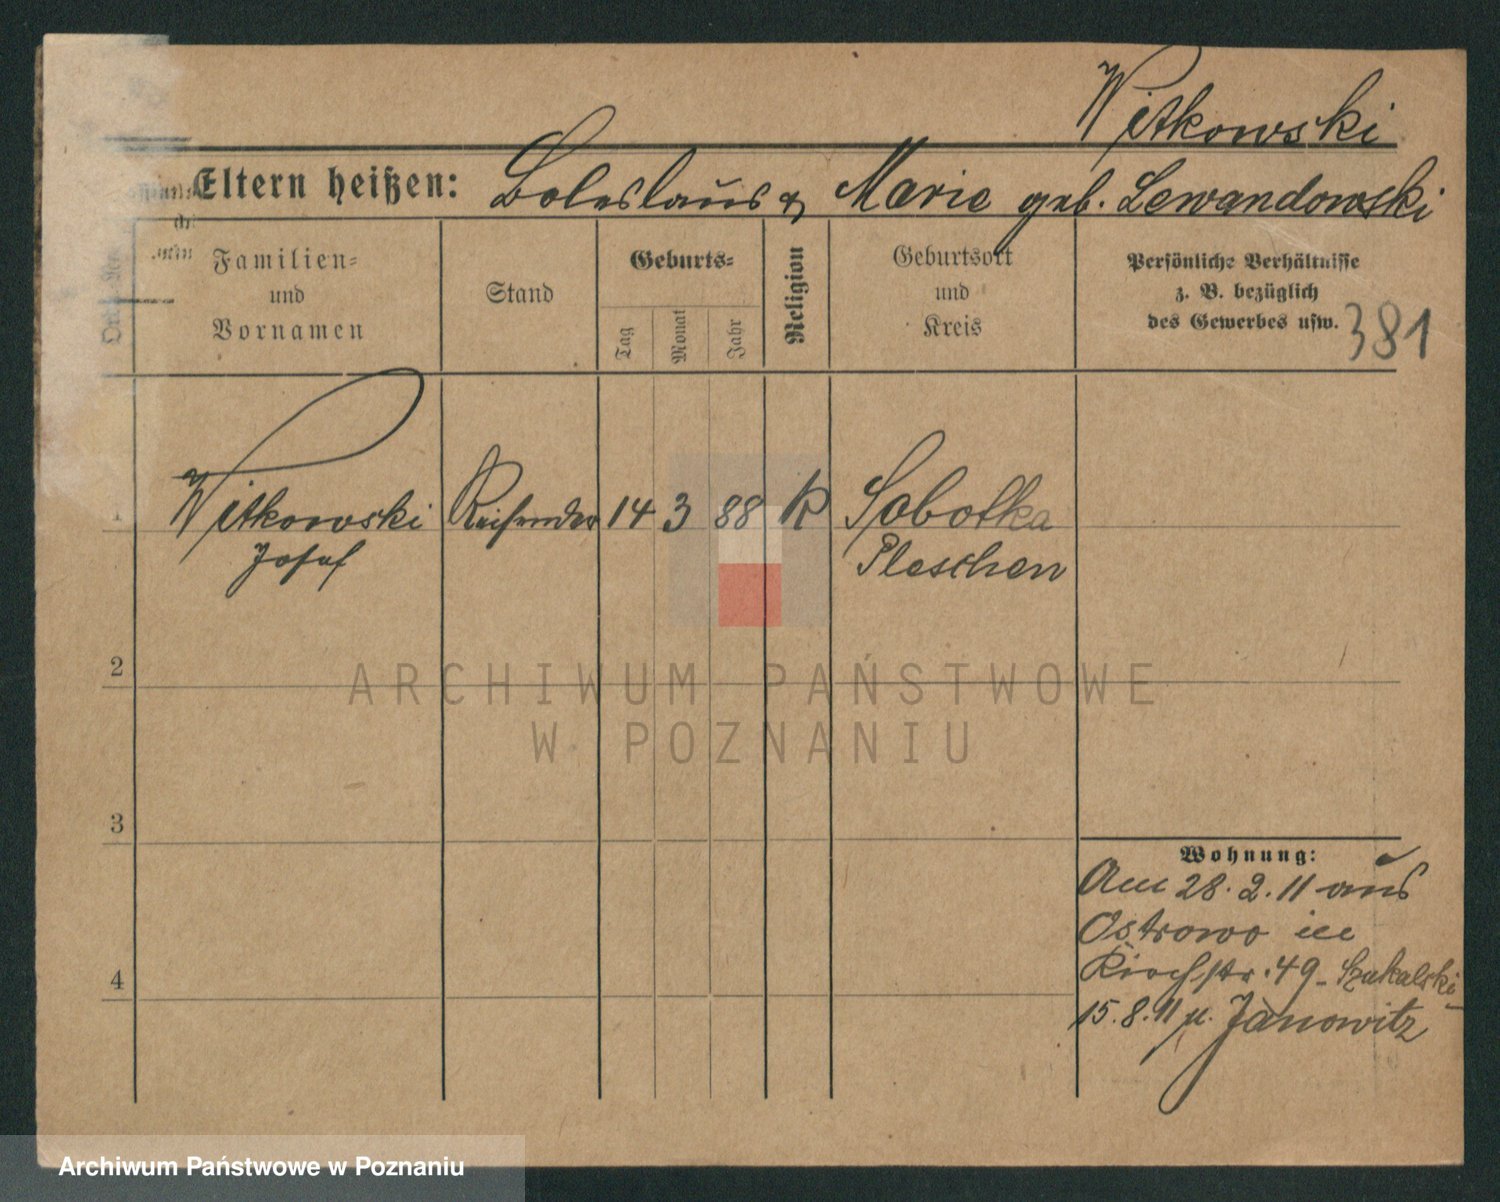 Witkowski
Eltern heißen: Boleslaus & Marie geb. Lewandowski
Familien- und Vornamen
Stand
Geburts-
Tag
Monat
Jahr
Religion
Geburtsort und Kreis
Persönliche Verhältnisse
z. B. bezüglich
des Gewerbes usw.
381
1 Witkowski Reisender 14 3 88 K Sobotka
Josef Pleschen
2
3
4
Wohnung:
Am 28.2.11 aus
Ostrowo in
Kirchstr. 49 - Szukalski
15.8.11 n. Janowitz
ARCHIWUM PAŃSTWOWE
W POZNANIU
Archiwum Państwowe w Poznaniu